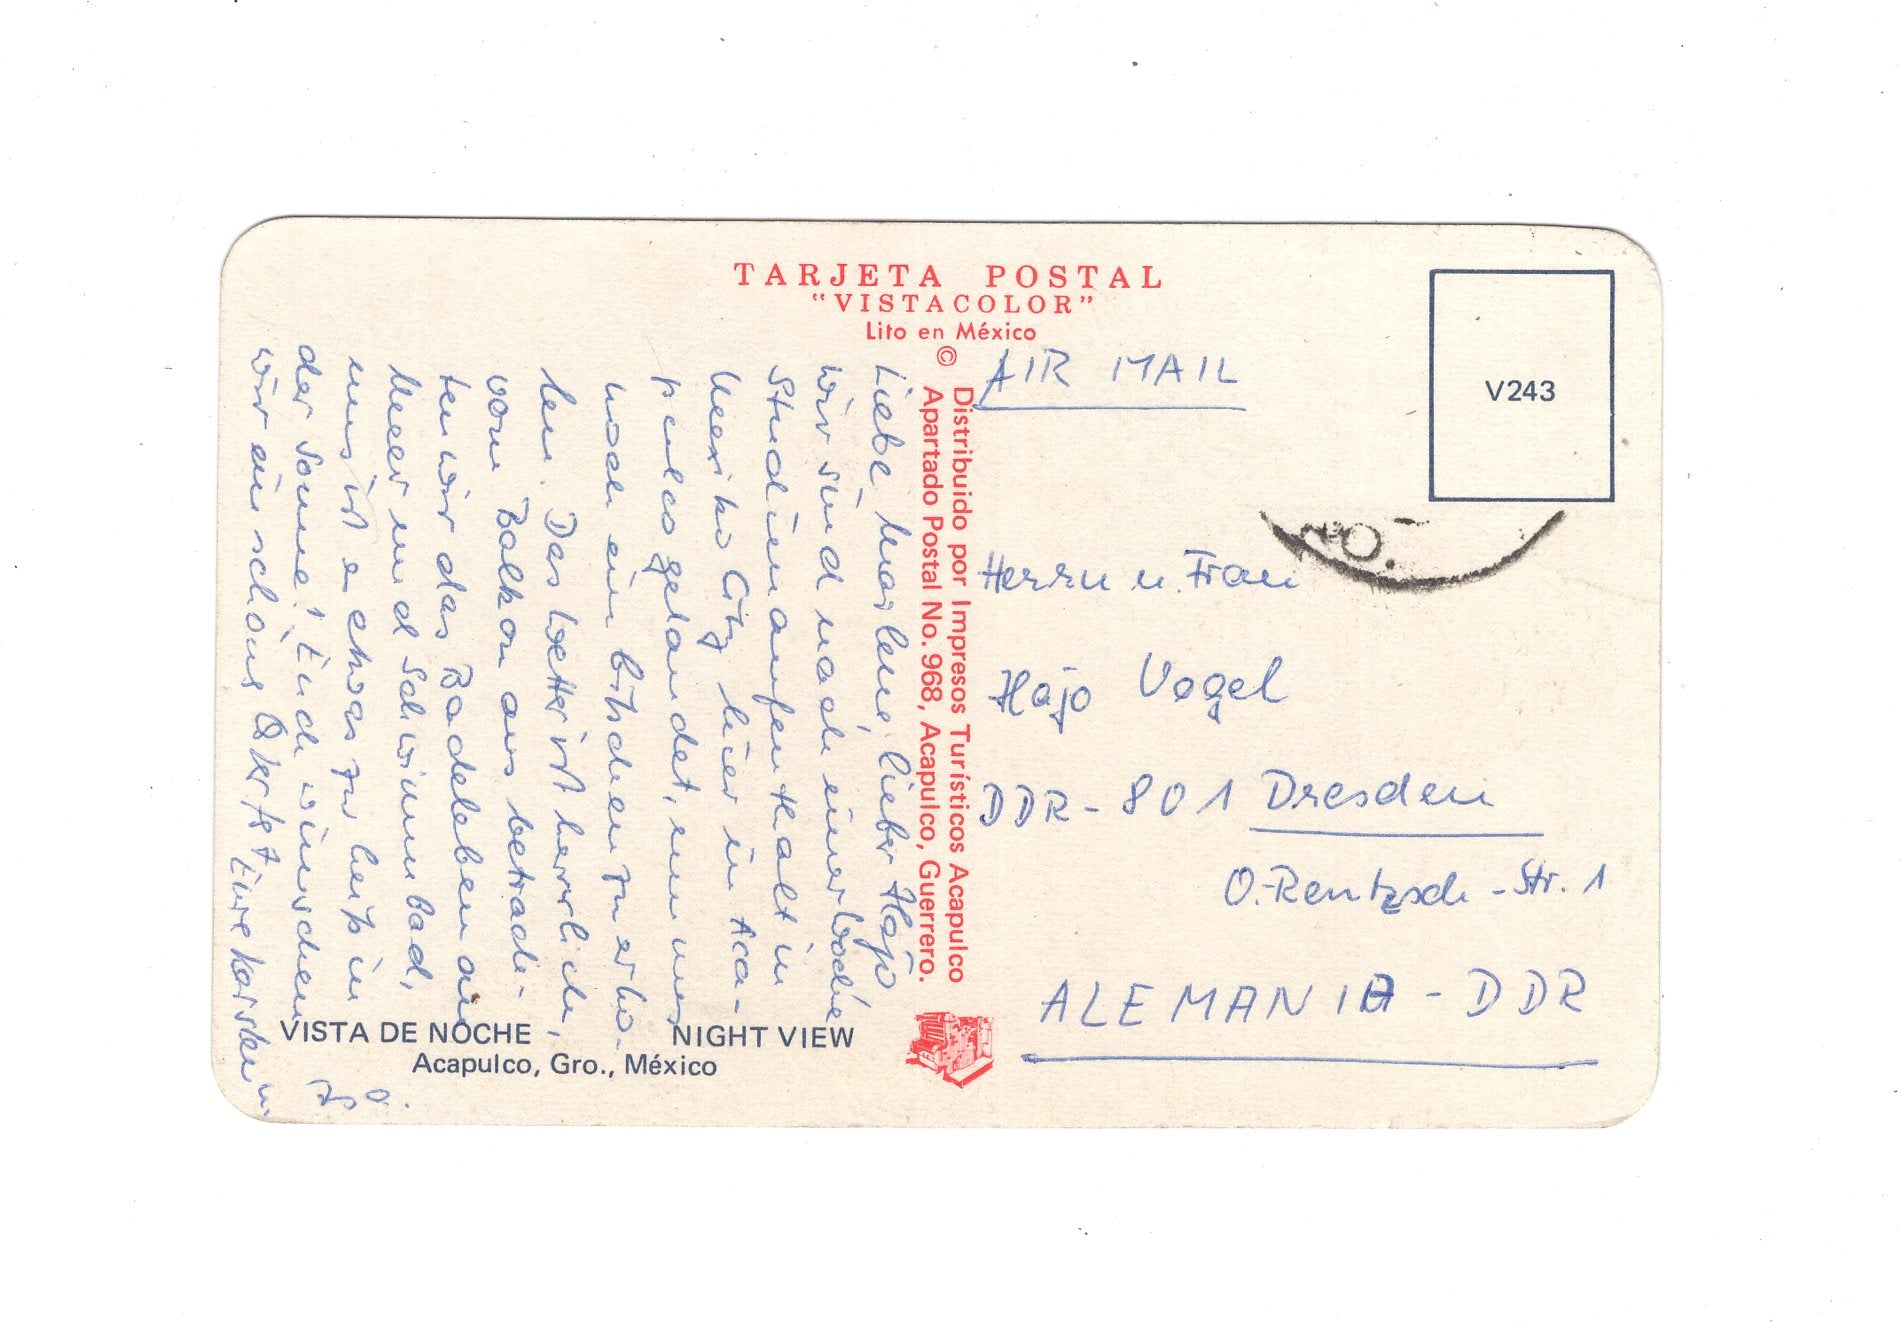 TARJETA POSTAL
"VISTACOLOR"
Lito en México
©
Distribuido por Impresos Turísticos Acapulco
Apartado Postal No. 968, Acapulco, Guerrero.
V243
AIR MAIL
Herrn u. Frau
Hajo Vogel
DDR - 801 Dresden
O.-Rentzsch-Str. 1
ALEMANIA - DDR
Liebe Marlene, lieber Hajo
wir sind nach einer Woche
Studienaufenthalt in
Mexiko City hier in Aca-
pulco gelandet, um uns
noch ein bißchen zu erho-
len. Das Wetter ist herrlich,
vom Balkon aus betrach-
ten wir das Badeleben am
Meer und Schwimmbad,
uns ist es etwas zu heiß in
der Sonne! Euch wünschen
wir ein schöns Osterfest Eure
u.
VISTA DE NOCHE NIGHT VIEW
Acapulco, Gro., México